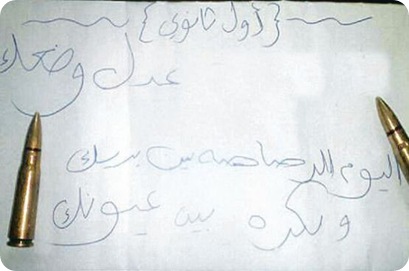 {أول ثانوي}
عدل وضعك
اليوم الرصاصه بين يديك
وبكره بين عيونك